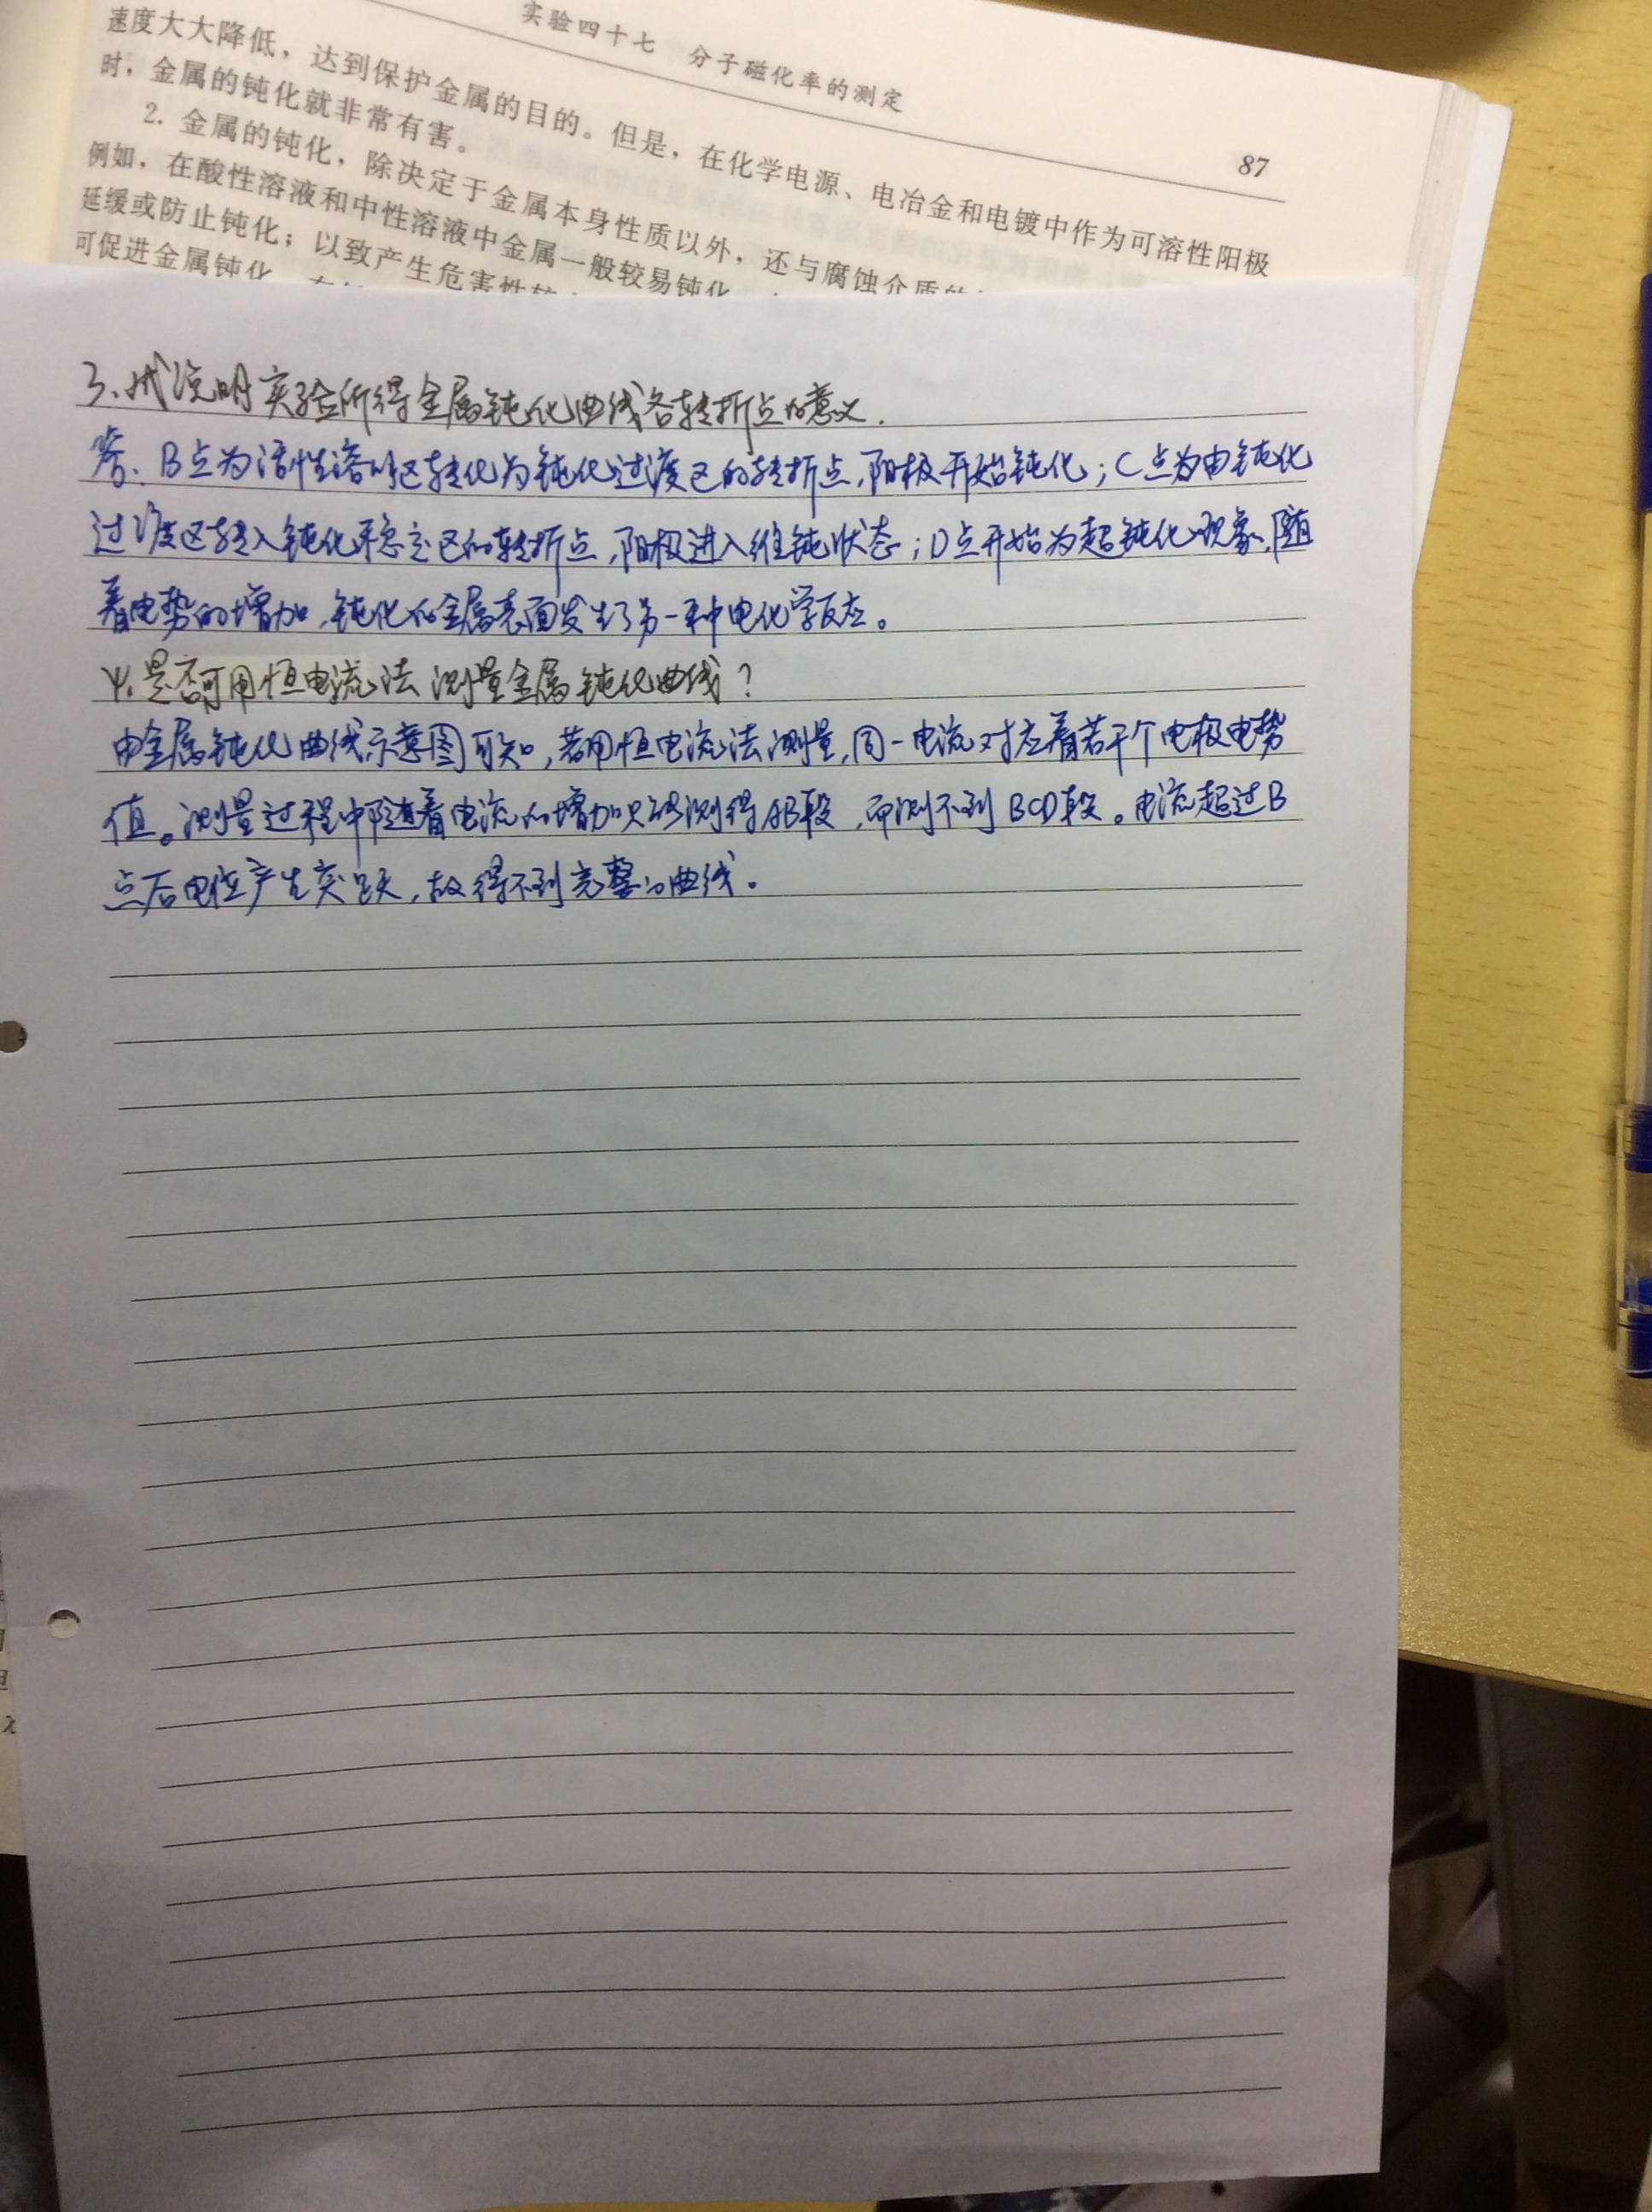 实验四十七 分子磁化率的测定
87
速度大大降低，达到保护金属的目的。但是，在化学电源、电冶金和电镀中作为可溶性阳极
时，金属的钝化就非常有害。
2. 金属的钝化，除决定于金属本身性质以外，还与腐蚀介质的
例如，在酸性溶液和中性溶液中金属一般较易钝化
延缓或防止钝化；以致产生危害性较
可促进金属钝化
3、试说明实验所得金属钝化曲线各转折点的意义.
答、B点为活性溶解区转化为钝化过渡区的转折点,阳极开始钝化；C点为由钝化
过渡区转入钝化稳定区的转折点,阳极进入维钝状态；D点开始为超钝化现象,随
着电势的增加,钝化的金属表面发生了另一种电化学反应。
4、是否可用恒电流法测量金属钝化曲线？
由金属钝化曲线示意图可知,若用恒电流法测量,同一电流对应着若干个电极电势
值。测量过程中随着电流的增加只能测得AB段,而测不到BCD段。电流超过B
点后电位产生突跃,故得不到完整的曲线。